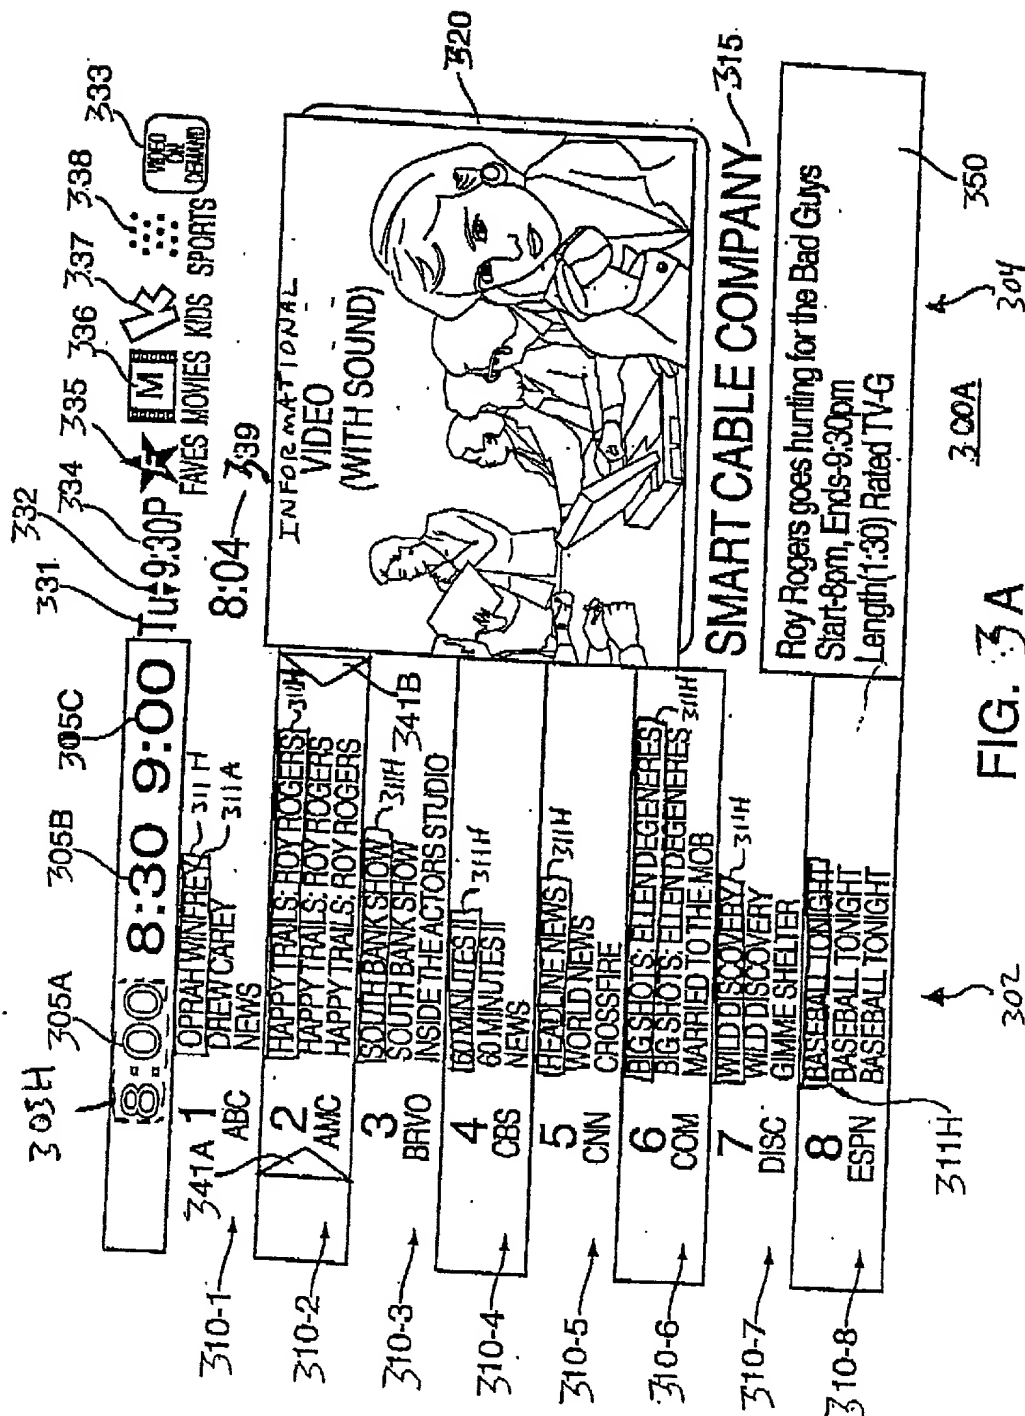 305H
305A
305B
305C
331
332
334
335
336
337
338
333
8:00 8:30 9:00
Tu 9:30P
F
M
K
VIDEO
ON
DEMAND
FAVES MOVIES KIDS SPORTS
8:04
339
341A
1
ABC
OPRAH WINFREY
DREW CAREY
NEWS
311H
311A
2
AMC
HAPPY TRAILS: ROY ROGERS
HAPPY TRAILS: ROY ROGERS
HAPPY TRAILS: ROY ROGERS
311H
341B
3
BRVO
SOUTH BANK SHOW
SOUTH BANK SHOW
INSIDE THE ACTORS STUDIO
311H
4
CBS
60 MINUTES II
60 MINUTES II
NEWS
311H
5
CNN
HEADLINE NEWS
WORLD NEWS
CROSSFIRE
311H
6
COM
BIG SHOTS: ELLEN DEGENERES
BIG SHOTS: ELLEN DEGENERES
MARRIED TO THE MOB
311H
7
DISC
WILD DISCOVERY
WILD DISCOVERY
GIMME SHELTER
311H
8
ESPN
BASEBALL TONIGHT
BASEBALL TONIGHT
BASEBALL TONIGHT
311H
310-1
310-2
310-3
310-4
310-5
310-6
310-7
310-8
INFORMATIONAL
VIDEO
(WITH SOUND)
320
SMART CABLE COMPANY
315
Roy Rogers goes hunting for the Bad Guys
Start-8pm, Ends-9:30pm
Length(1:30) Rated TV-G
350
302
304
300A
FIG. 3A